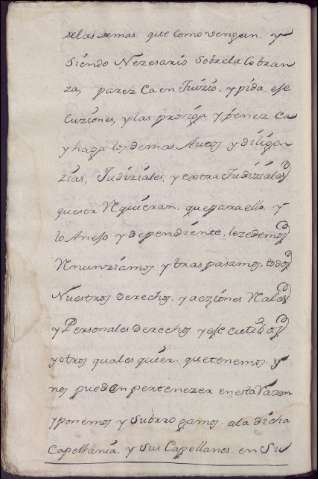 selas demas que como vengan. y
Siendo Nezesario Sobrela Cobran
za, parezca en Juizio, y pida, exe
Cuziones, y las prosiga y fenezca
y haga los demas Autos y dilixen
zias, Judiziales, y extra Judiziales
que se a Requieran. que para ello y
lo Anexo y dependiente, le zedemos
Renunziamos, y tras pasamos, todos
Nuestros derechos, y acziones Reales
y Personales derechos y executtibos
y otros quales quier, que tenemos y
nos pueden pertenezer en esta Razon
y ponemos y Subrro gamos. a la dicha
Capellania, y Sus Capellanes en Su